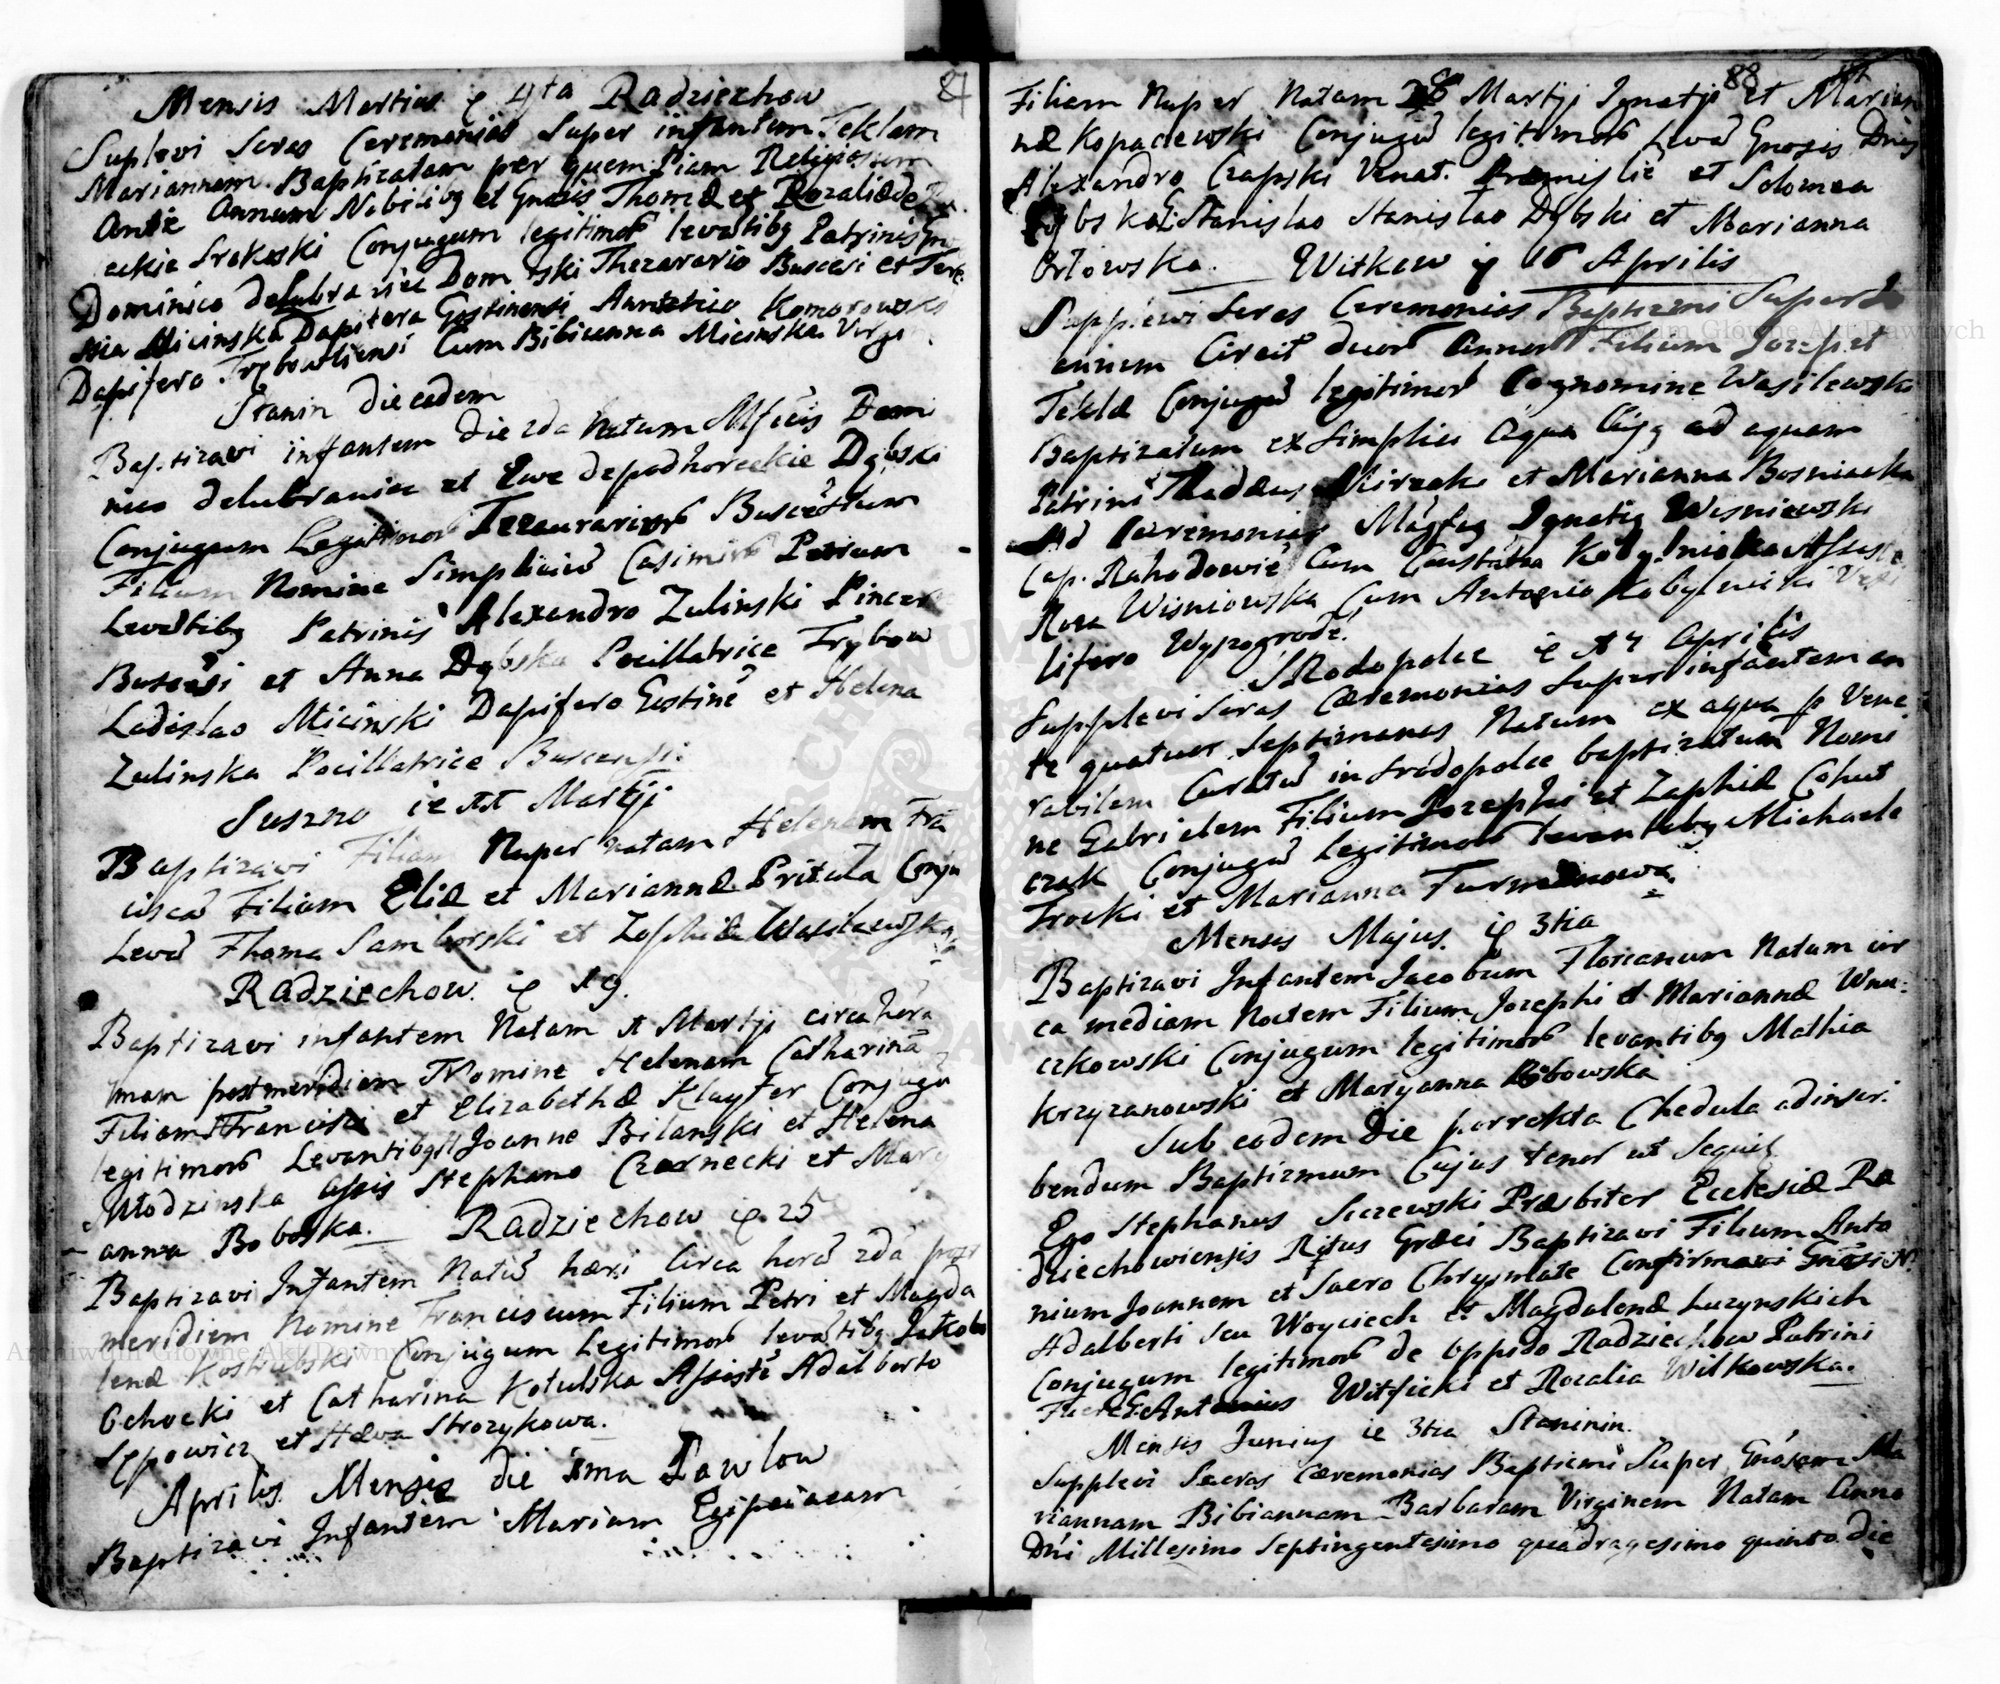 87
Mensis Martius ie 4ta Radziechow
Suplevi Sacras Ceremonias Super infantem Teklam
Mariannam Baptizatam per quem Piam Religiosum
Ante Annum Nobilibq et Gnosis Thomæ et Rozaliæ de
Srokoski Conjugum legitimor levatibq Patrinis
Dominico de Lubraniec Dombski Thezaurario Buscensi et
Micinska Dapifera Gostinensi Komorowski
Dapifero Trybowliensi Cum Bibianna Micinska Virgi
Stanin die eadem
Baptizavi infantem die 2da Natum Mfcis Domi
nico de Lubraniec et Ewe de podhoreckie Dąbski
Conjugum Legitimor Tezaurarior Buscēs
Filium Nomine Simpliciū Casimirū Petrum
Levātibq Patrinis Alexandro Zulinski Pincer
Buscēsi et Anna Dąbska Pocillatrice Trybow
Ladislao Micinski Dapifero Gostinē et Helena
Zulinska Pocillatrice Buscensi.
Suszno ie 11 Martji
Baptizavi Filiam Nuper natam Helenam Frā
ciscā Filiam Eliæ et Mariannæ Pritula Conju
Levā Thoma Samborski et Zophiæ Wasilewska
Radziechow ie 19.
Baptizavi infantem Natam Martji circa hora
1mam post meridiem Nomine Helenam Catharinā
Filiam Francisci et Elizabethæ Klayfer Conjugū
legitimor Levantibq Joanne Bilanski et Helena
Młodzinska Assis Stephano Czarnecki et Mary
anna Boboska. Radziechow ie 25
Baptizavi Infantem Natū hæri Circa horā 2dā post
meridiem Nomine Franciscum Filium Petri et Magda
lenæ Kostrubski Conjugum Legitimor levātibq Jakobo
Ochocki et Catharina Kotulska Assistē Adalberto
Sępowicz et Hæva Strozykowa.
Aprilis Mensis die 1ma Pawlow
Baptizavi Infantem Mariam Egipciacam
88
Filiam Nuper Natam 28 Martji Ignatji et Marian
næ Kopaczewski Conjugū legitimor Levā Gnosis Dnis
Alexandro Czapski Venat. Premislie et Solomea
Stanislao Dąbski et Marianna
Orłowska. Witkow ie 16 Aprilis
Supplevi Sacras Ceremonias Baptizmi Super
Circit duor Annor Filium Jozefi et
Teklæ Conjugū legitimor Cognomine Wasilewski
Baptizatum ex Simplici Aqua ad aquam
Patrini Thaddæus Mirzeki et Marianna Bosniacka
Ad Ceremonias Mágfcg Ignatiq Wisniewski
Cap. Rahodowiē Cum Kobylnicka Assist
Roza Wisniowska Cum Antonio Kobylnicki Vexi
lifero Wyzogrodz.
Srodopolce ie 17 Aprilis
Supplevi Sacras Cæremonias Super infantem an
te quatuor Septimanas Natum ex aqua p Vene
rabilem Curatū in Srodopolce baptizatum Nomi
ne Gabrielem Filium Jozephi et Zaphiæ Cohut
czak Conjugū Legitimor levantibq Michaele
Trocki et Marianna Furmanowa.
Mensis Majus ie 3tia
Baptizavi Infantem Jacobum Florianum Natum cir
ca mediam Noctem Filium Jozephi et Mariannæ Wnu-
czkowski Conjugum legitimor levantibq Mathia
Krzyzanowski et Maryanna Bobowska
Sub eodem Die porrekta Chedula ad inscri.
bendum Baptizmum Cujus tenor ut Sequit
Ego Stephanus Suczewski Præsbiter Ecclesiæ Ra
dziechowiensis Ritus Græci Baptizavi Filium Anto
nium Joannem et Sacro Chrysmate Confirmavi Gnosi
Adalberti Seu Woyciech et Magdalenæ Luzynskich
Conjugum legitimor de Oppido Radziechow Patrini
Fuere G. Antonius Witsicki et Rozalia Wilkowska.
Mensis Junius ie 3tia Staninin.
Supplevi Sacras Cæremonias Baptizmi Super Gnosam Ma
riannam Bibiannam Barbaram Virginem Natam Anno
Dni Millesimo Septingentesimo quadragesimo quinto die
Archiwum Główne Akt Dawnych